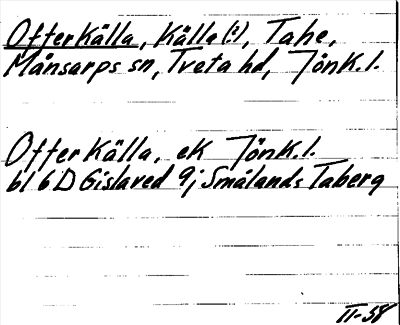 Offerkälla, Källa (:), Tahe,
Månsarps sn, Tveta hd, Jönk. l.
Offerkälla, ek Jönk. l.
bl 6D Gislaved 9j Smålands Taberg
II-58